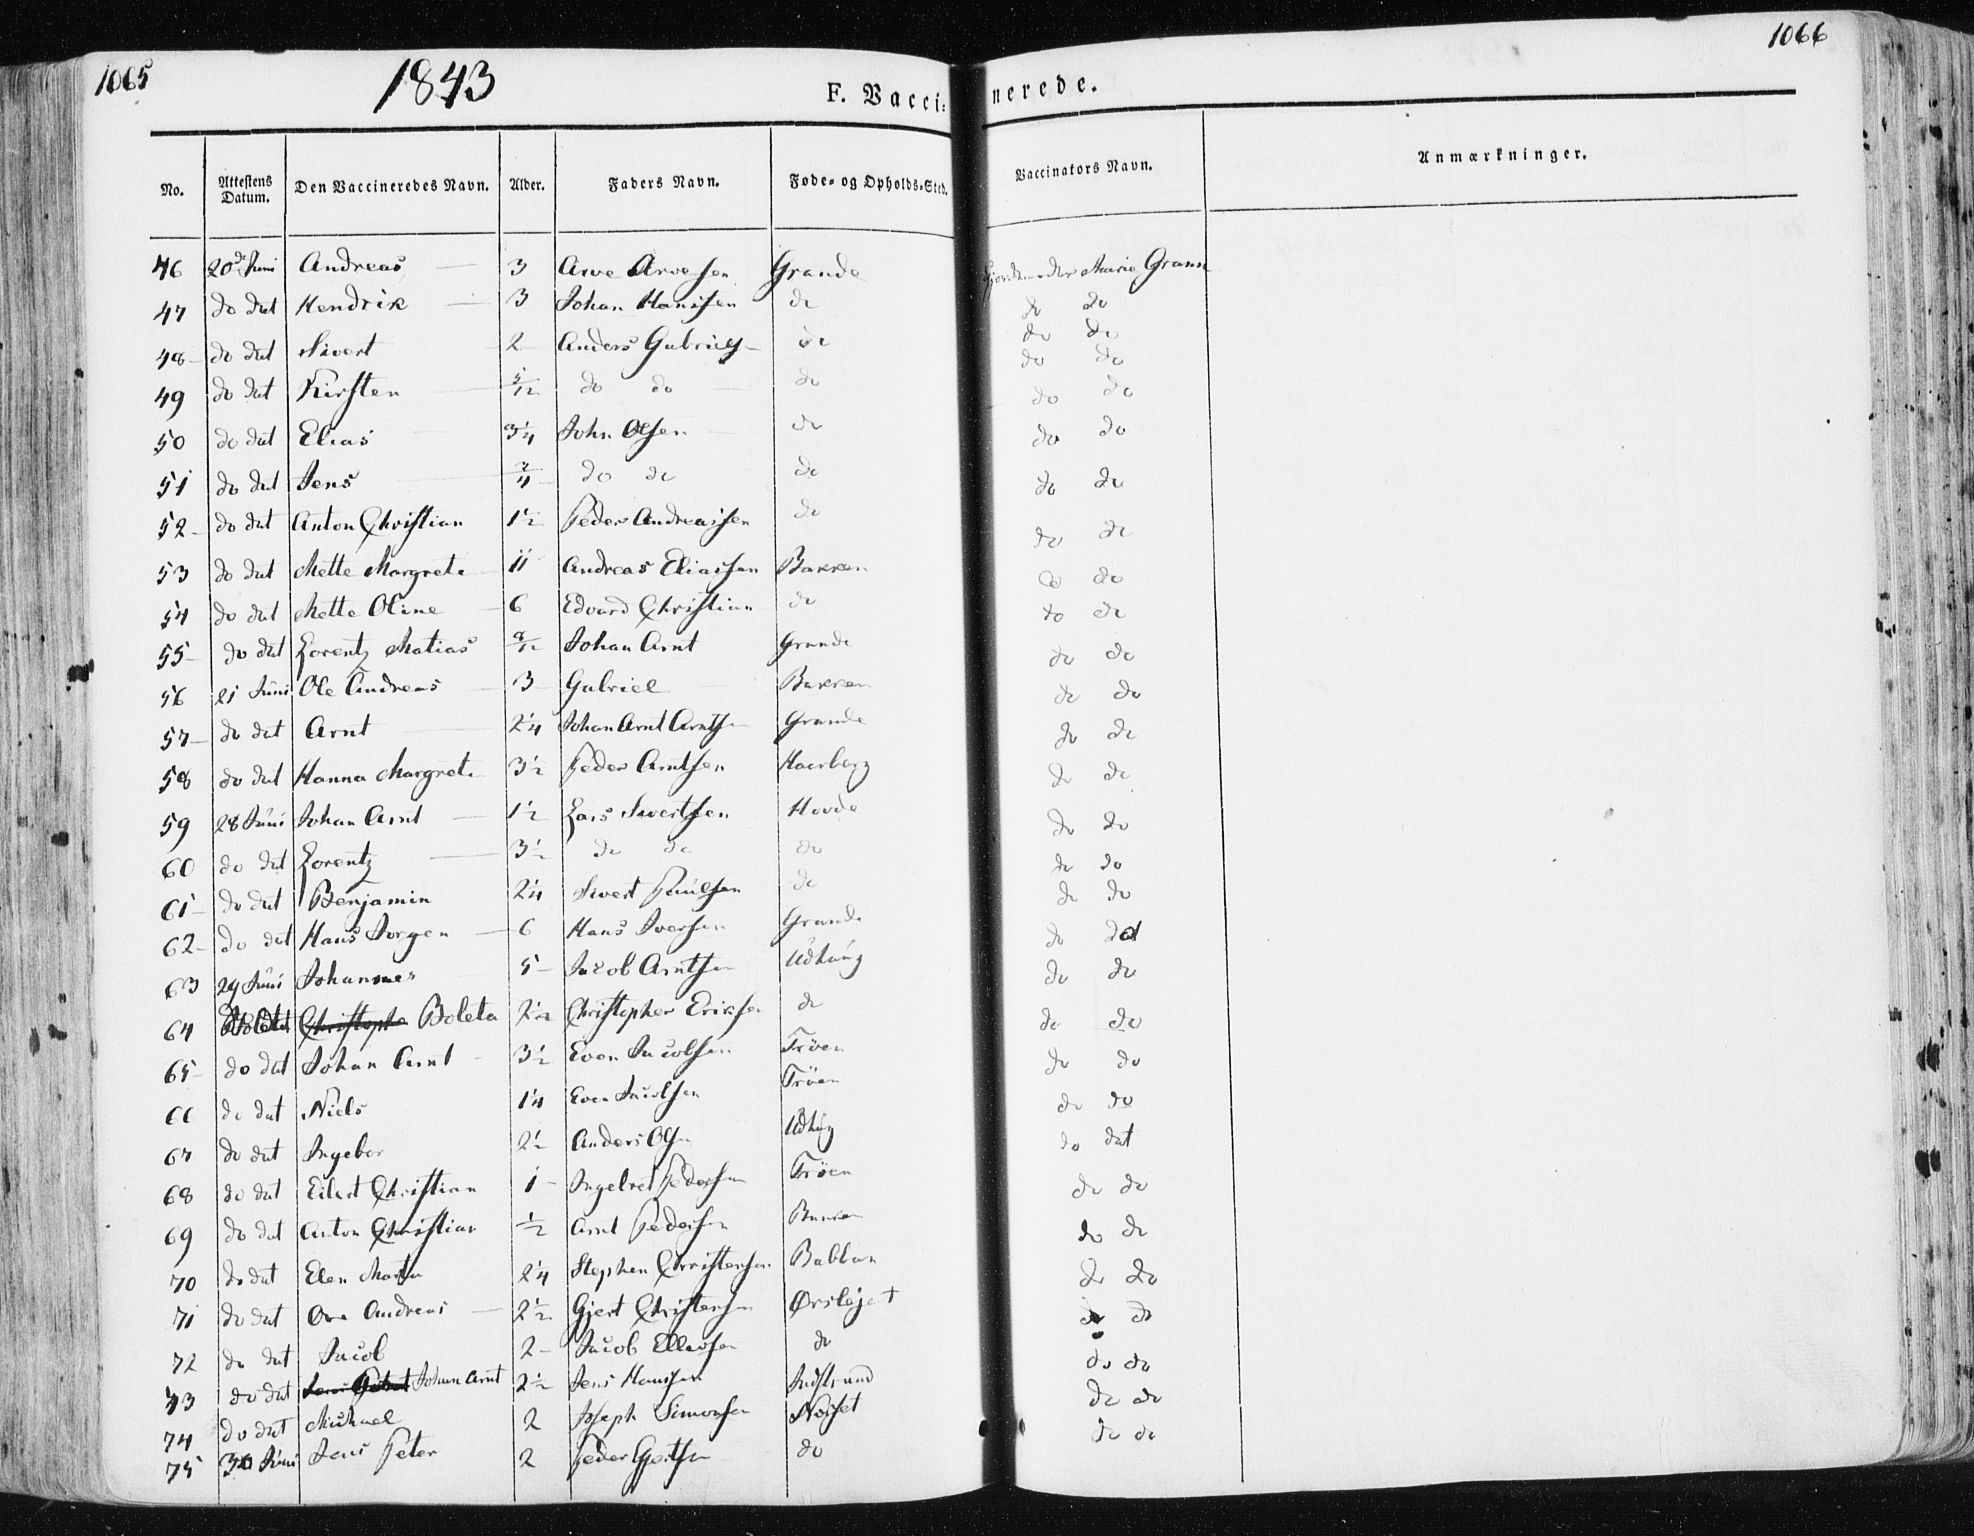 1065
1843
F. Vacci-
nerede.
1066
No. Attestens Datum. Den Vaccineredes Navn. Alder. Faders Navn. Føde- og Opholds-Sted. Vaccinators Navn. Anmærkninger.
46 20de Juni Andreas 3 Arve Arvesen Grande Marie Grann
47 do dat Hendrik 3 Johan Hanssen do do do
48 do dat Sivert 2 Anders Gabriels do do do
do do
49 do dat Kirsten 5/12 do do do do do
50 do dat Elias 3 1/4 John Olsen do do do
51 do dat Jens 3/4 do do do do do
52 do dat Anton Christian 1 1/2 Peder Andreassen do do do
53 do dat Mette Margrete 11 Andreas Eliassen Bakken do do
54 do dat Mette Oline 6 Edvard Christian do do do
55 do dat Lorentz Matias 8/12 Johan Arnt Grande do do
56 21 Juni Ole Andreas 3 Gabriel Bakken do do
57 do dat Arnt 2 1/4 Johan Arnt Arntsen Grande do do
58 do dat Hanna Margrete 3 1/2 Peder Arntsen Haarberg do do
59 28 Juni Johan Arnt 1 1/2 Lars Sivertsen Hovde do do
60 do dat Lorentz 3 1/2 do do do do do
61 do dat Benjamin 2 1/4 Sivert Paulsen do do do
62 do dat Hans Jorgen 6 Hans Iversen Grande do do
63 29 Juni Johannes 5 Jacob Arntsen Udhaug do do
64 Christophe Boleta 2 1/2 Christopher Eriksen do do do
65 do dat Johan Arnt 3 1/2 Even Jacobsen Trøen do do
66 do dat Niels 1 1/4 Even Jacobsen Trøen do do
67 do dat Ingebor 2 1/2 Anders Olsn Udhug do dat
68 do dat Eilert Christian 1 Ingebret Pedersen Trøen do do
69 do dat Anton Christian 1/2 Arnt Pedersen do do
70 do dat Elen Marta 2 1/4 Stephen Christensen do do
71 do dat Ove Andreas 2 1/2 Gjert Christensen Ørsløjet do do
72 do dat Jacob 2 Jacob Ellevsen do do do
73 do dat Johan Arnt 2 1/2 Jens Hanssen Indstrand do do
74 do dat Michael 2 Joseph Simonsen do do
75 30 Juni Jens Peter 2 Peder Gjertsen do